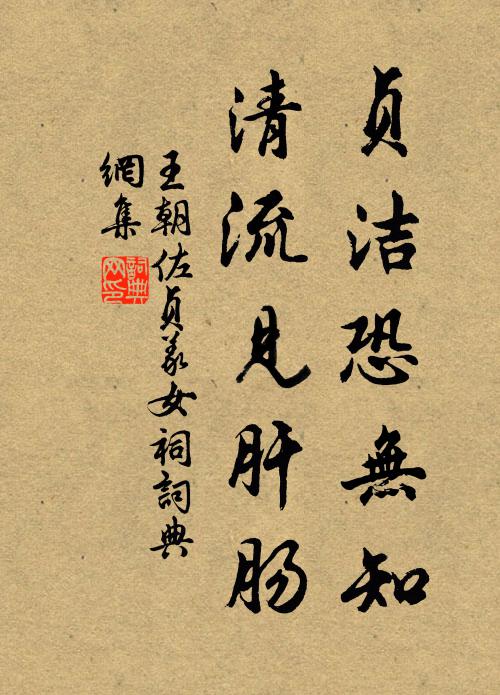 贞洁恐無知
清流見肝肠
王朝佐貞義女祠詞典
網集
詞典
网印